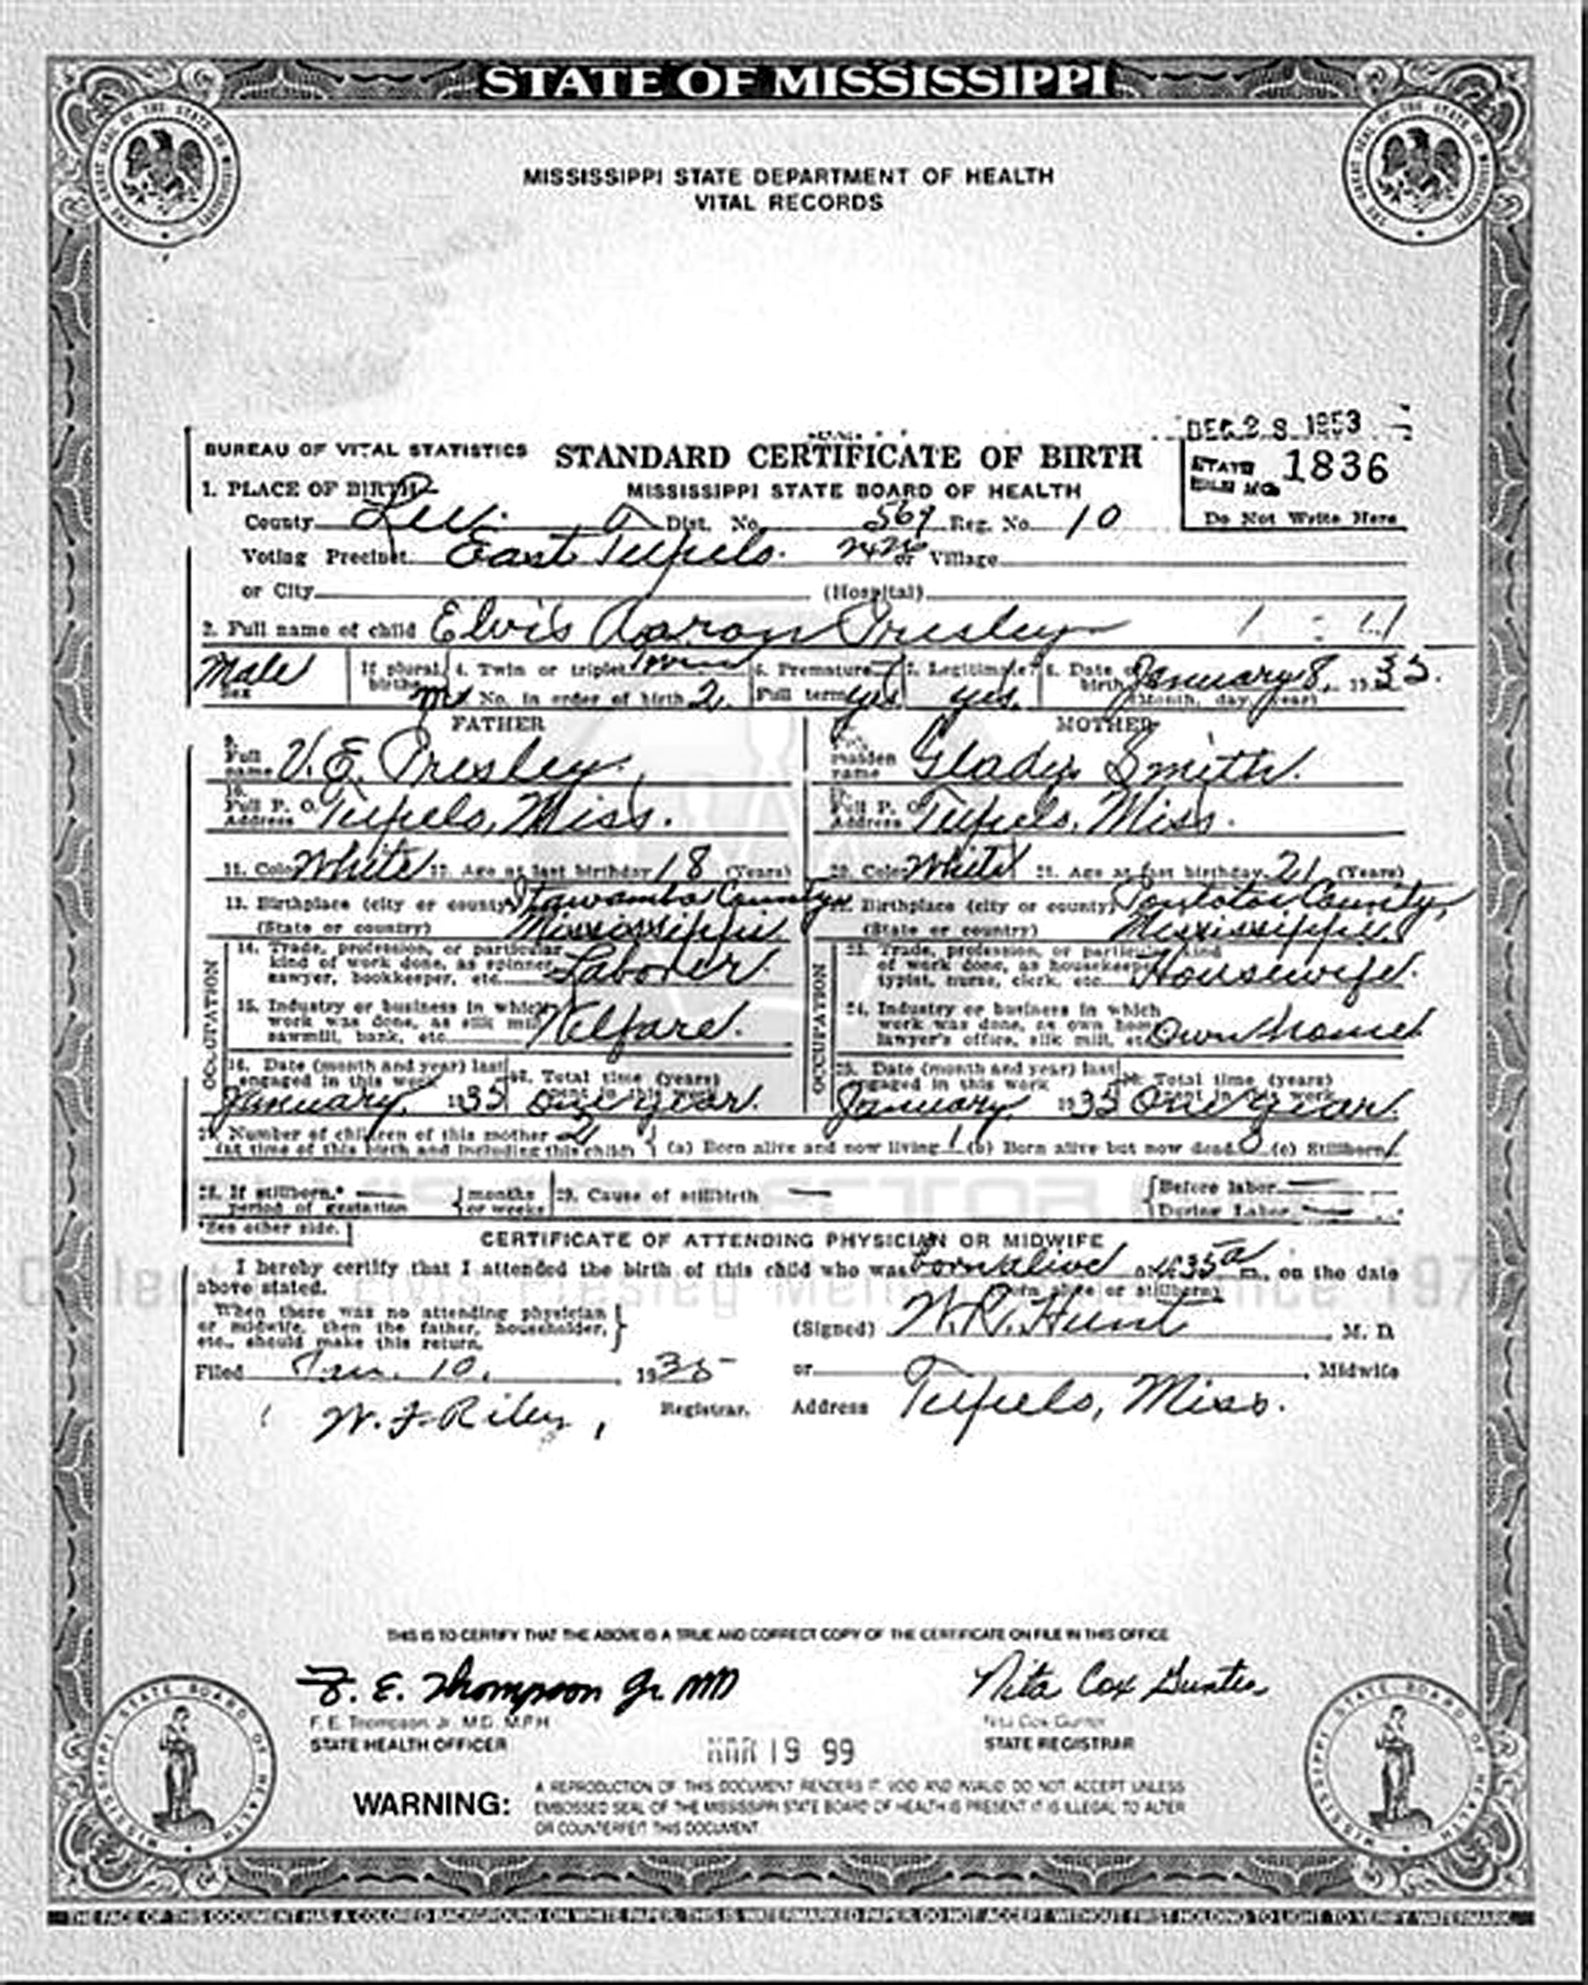 STATE OF MISSISSIPPI
THE GREAT SEAL OF THE STATE OF MISSISSIPPI
THE GREAT SEAL OF THE STATE OF MISSISSIPPI
MISSISSIPPI STATE DEPARTMENT OF HEALTH
VITAL RECORDS
DEC 28 1953
BUREAU OF VITAL STATISTICS STANDARD CERTIFICATE OF BIRTH STATE 1836
1. PLACE OF BIRTH MISSISSIPPI STATE BOARD OF HEALTH
County Lee. Dist. No. 569 Reg. No. 10 Do Not Write Here
Voting Precinct East Tupelo. or Village
or City (Hospital)
2. Full name of child Elvis Aaron Presley
Male Sex If plural births 4. Twin or triplet Twin No. in order of birth 2. 6. Premature Full term yes 7. Legitimate? yes. 8. Date of birth January 8, 1935.
(Month, day, year)
FATHER MOTHER
9. Full name V. E. Presley. maiden name Gladys Smith.
10. Full P. O. Address Tupelo, Miss. Full P. O. Address Tupelo, Miss.
11. Color White 12. Age at last birthday 18 (Years) 20. Color White 21. Age at last birthday 21 (Years)
13. Birthplace (city or county) Itawamba County 22. Birthplace (city or county) Pontotoc County,
(State or country) Mississippi. (State or country) Mississippi.
OCCUPATION
14. Trade, profession, or particular kind of work done, as spinner, sawyer, bookkeeper, etc. Laborer.
15. Industry or business in which work was done, as silk mill, sawmill, bank, etc. Welfare.
16. Date (month and year) last engaged in this work January, 1935 Total time (years) spent in this work one year.
OCCUPATION
23. Trade, profession, or particular kind of work done, as housekeeper, typist, nurse, clerk, etc. Housewife.
24. Industry or business in which work was done, as own home, lawyer's office, silk mill, etc. Own home.
25. Date (month and year) last engaged in this work January 1935 Total time (years) spent in this work One year.
27. Number of children of this mother 2
(at time of this birth and including this child) (a) Born alive and now living 1 (b) Born alive but now dead 0 (c) Stillborn 1
28. If stillborn,* period of gestation months or weeks 29. Cause of stillbirth Before labor During Labor
*See other side.
CERTIFICATE OF ATTENDING PHYSICIAN OR MIDWIFE
I hereby certify that I attended the birth of this child who was born alive at 4:35 a m., on the date
above stated. (Born alive or stillborn)
When there was no attending physician
or midwife, then the father, householder,
etc., should make this return.
(Signed) W. R. Hunt, M. D.
Filed Jan. 10, 1935 or Midwife
W. F. Riley, Registrar. Address Tupelo, Miss.
THIS IS TO CERTIFY THAT THE ABOVE IS A TRUE AND CORRECT COPY OF THE CERTIFICATE ON FILE IN THIS OFFICE
F. E. Thompson Jr MD Nita Cox Gunter
F. E. Thompson, Jr., M.D., M.P.H. Nita Cox Gunter
STATE HEALTH OFFICER MAR 19 99 STATE REGISTRAR
WARNING: A REPRODUCTION OF THIS DOCUMENT RENDERS IT VOID AND INVALID. DO NOT ACCEPT UNLESS
EMBOSSED SEAL OF THE MISSISSIPPI STATE BOARD OF HEALTH IS PRESENT. IT IS ILLEGAL TO ALTER
OR COUNTERFEIT THIS DOCUMENT.
MISSISSIPPI STATE BOARD OF HEALTH
MISSISSIPPI STATE BOARD OF HEALTH
THE FACE OF THIS DOCUMENT HAS A COLORED BACKGROUND ON WHITE PAPER. THIS IS WATERMARKED PAPER. DO NOT ACCEPT WITHOUT FIRST HOLDING TO LIGHT TO VERIFY WATERMARK.